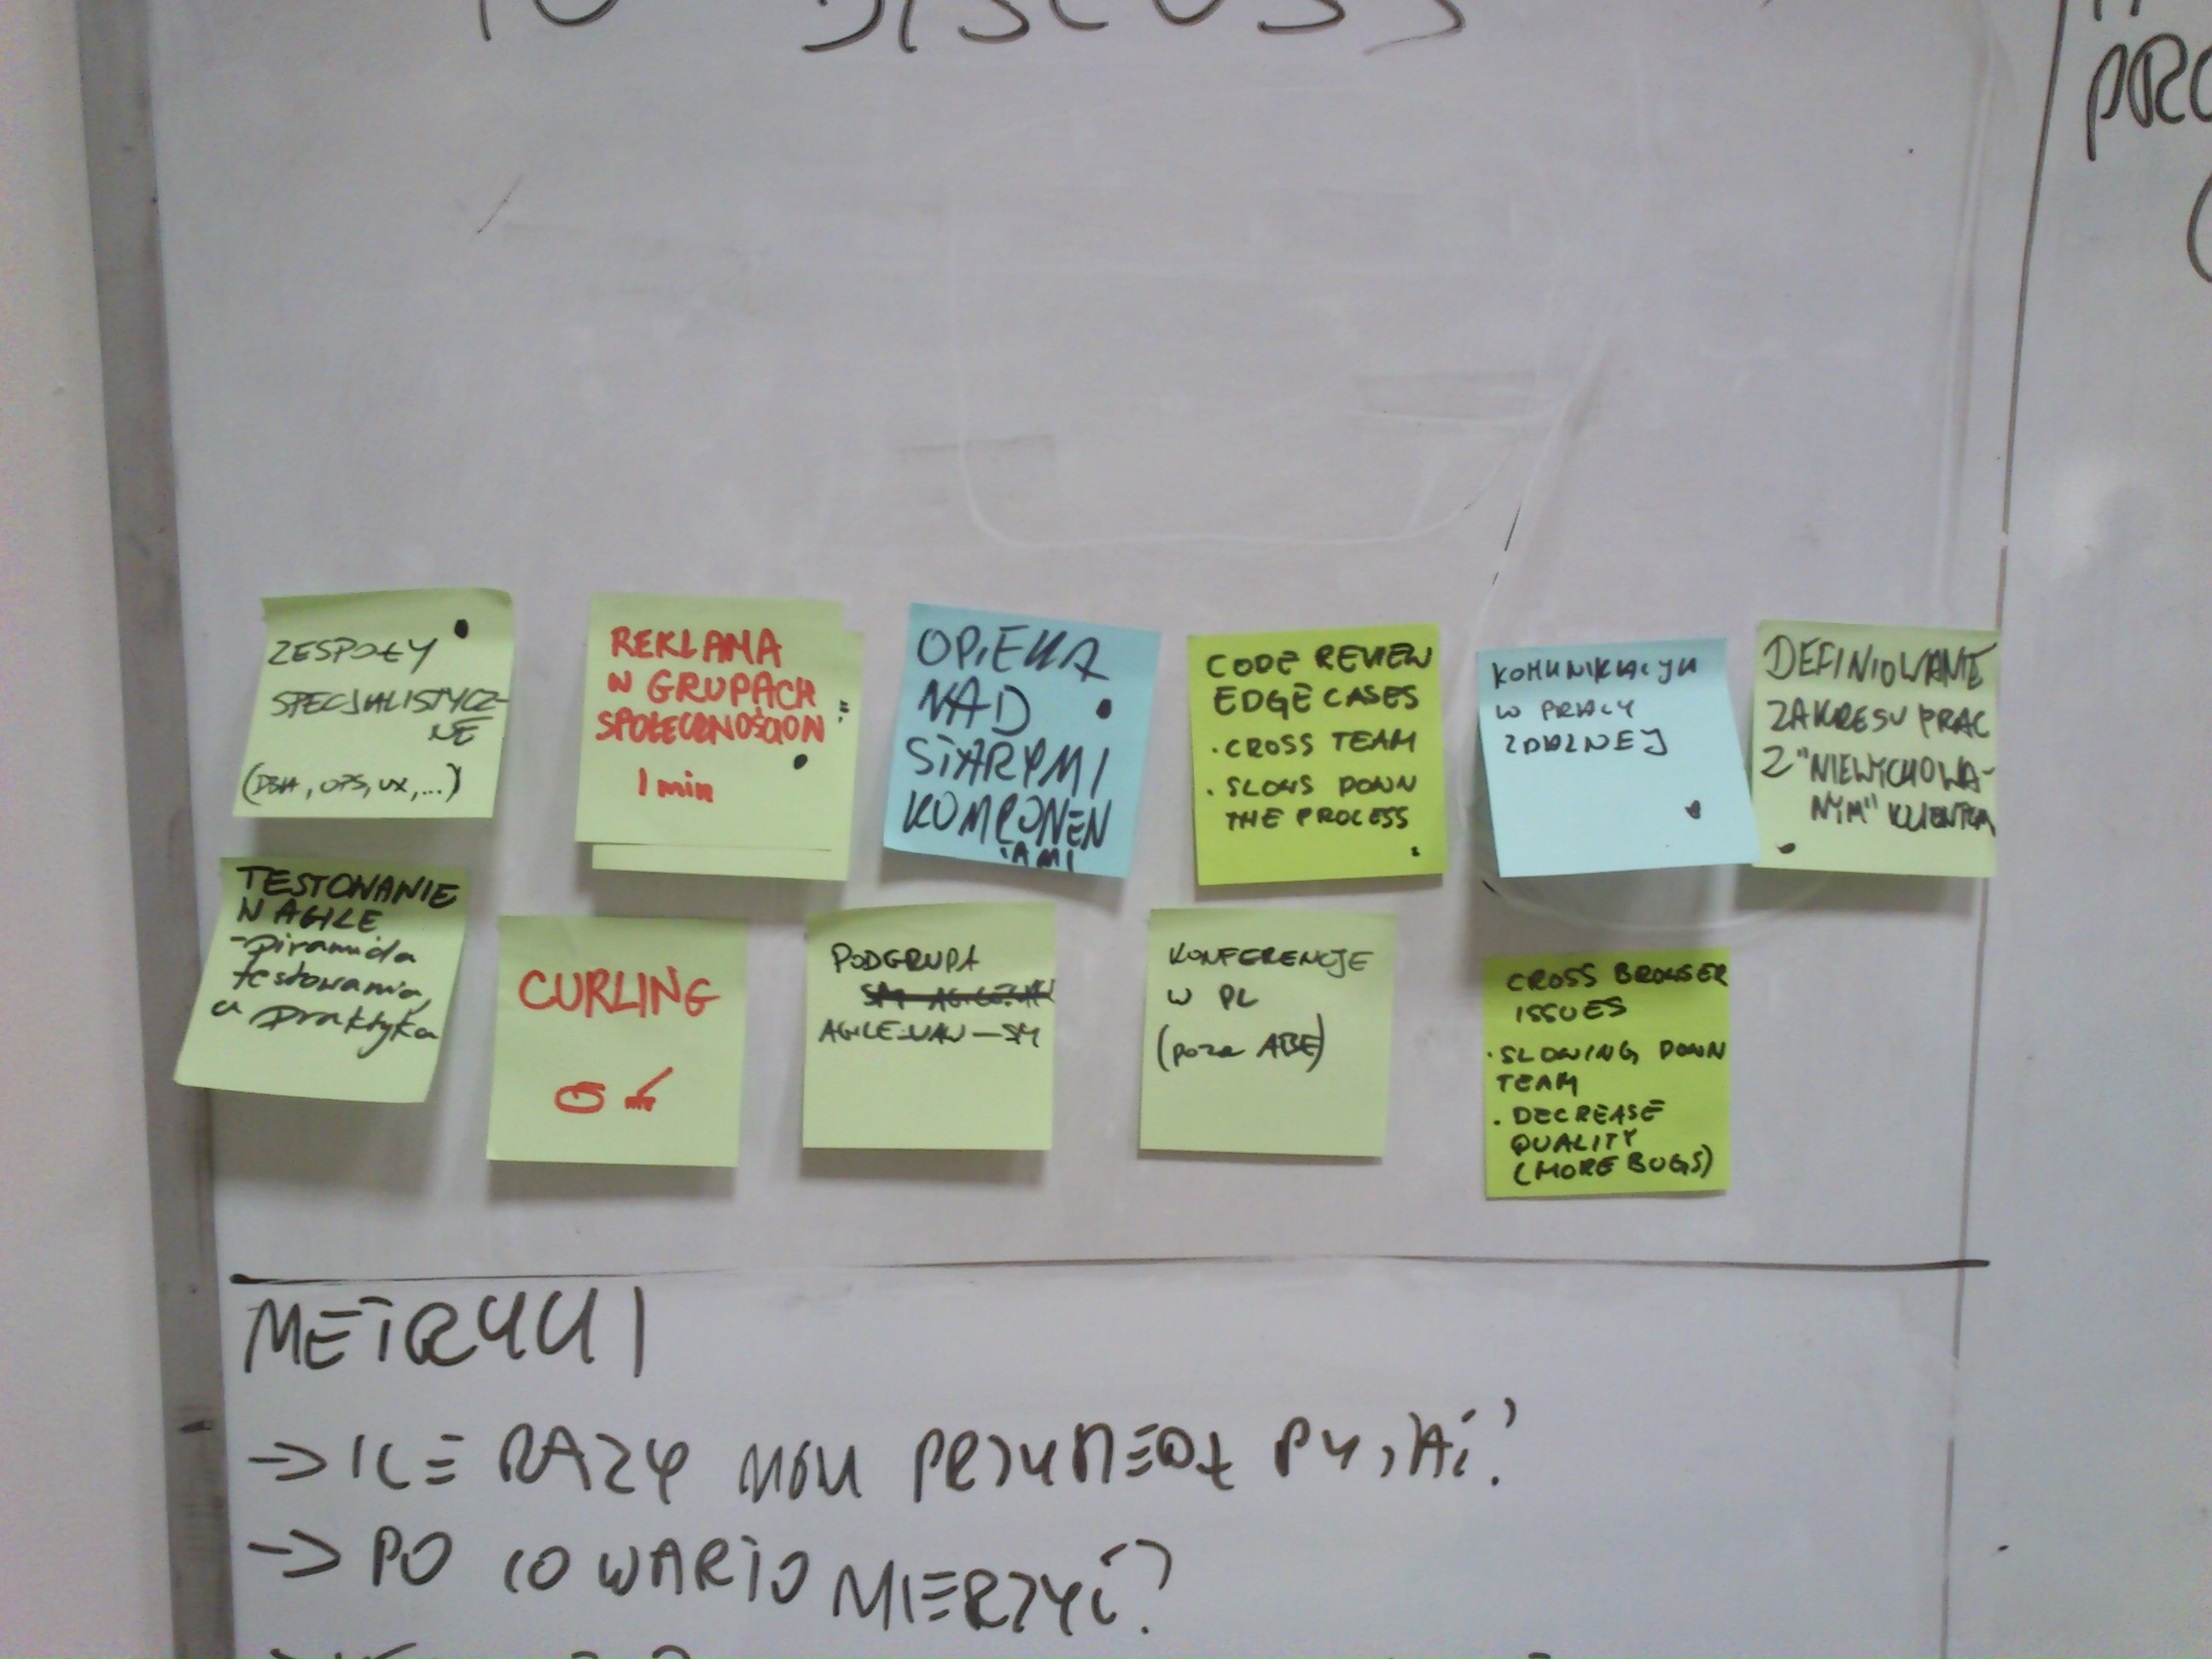 TO DISCUSS
PRO
ZESPOŁY
SPECJALISTYCZ-
NE
(DBA, OPS, UX, ...)
REKLAMA
W GRUPACH
SPOŁECZNOŚCIOW
1 min
OPIEKA
NAD
STARYMI
KOMPONEN
TAMI
CODE REVIEW
EDGE CASES
• CROSS TEAM
• SLOWS DOWN
THE PROCESS
KOMUNIKACJA
W PRACY
ZDALNEJ
DEFINIOWANIE
ZAKRESU PRAC
Z "NIEWYCHOWA-
NYM" KLIENTEM
TESTOWANIE
W AGILE
- piramida
testowania,
a praktyka
CURLING
PODGRUPA
AGILE.WAW - SM
KONFERENCJE
W PL
(poza ABE)
CROSS BROWSER
ISSUES
• SLOWING DOWN
TEAM
• DECREASE
QUALITY
(MORE BUGS)
METRYKI
→ ILE RAZY PYTAĆ?
→ PO CO WARTO MIERZYĆ?